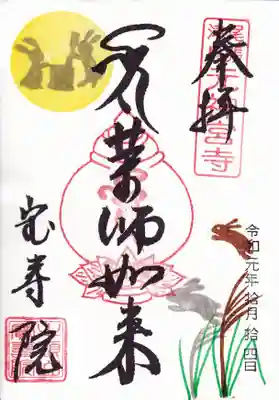 奉拝
薬師如来
令和元年拾月拾四日
宝寿院